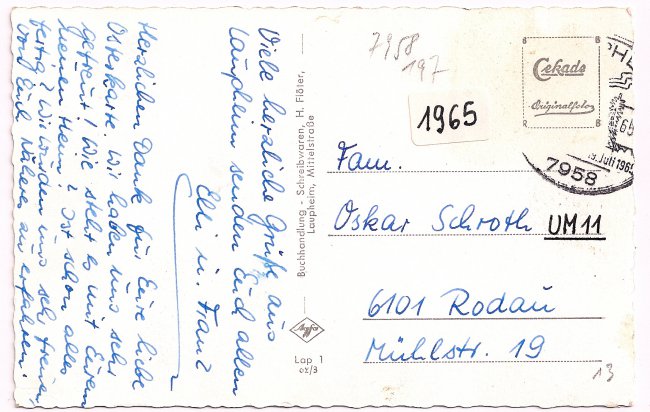 Viele herzliche Grüße aus
Laupheim senden Euch allen
Elli u. Franz
Herzlichen Dank für Eure liebe
Osterkarte. Wir haben uns sehr
gefreut! Wie steht es mit Eurem
neuen Heim? Ist schon alles
fertig? Wir würden uns sehr freuen,
von Euch Nähere zu erfahren.
Buchhandlung - Schreibwaren, H. Flöter,
Laupheim, Mittelstraße
Agfa
Lap 1
oz/3
7958
197
1965
Cekade
Originalfoto
7958
Fam.
Oskar Schroth
UM 11
6101 Rodau
Mühlstr. 19
13